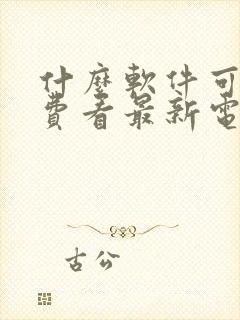 什麼軟件可
費看最新電
古公